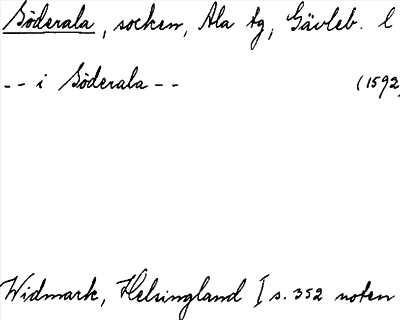 Söderala, socken, Ala tg, Gävleb. l
-- i Söderala -- (1592)
Widmark, Helsingland I s. 352 noten